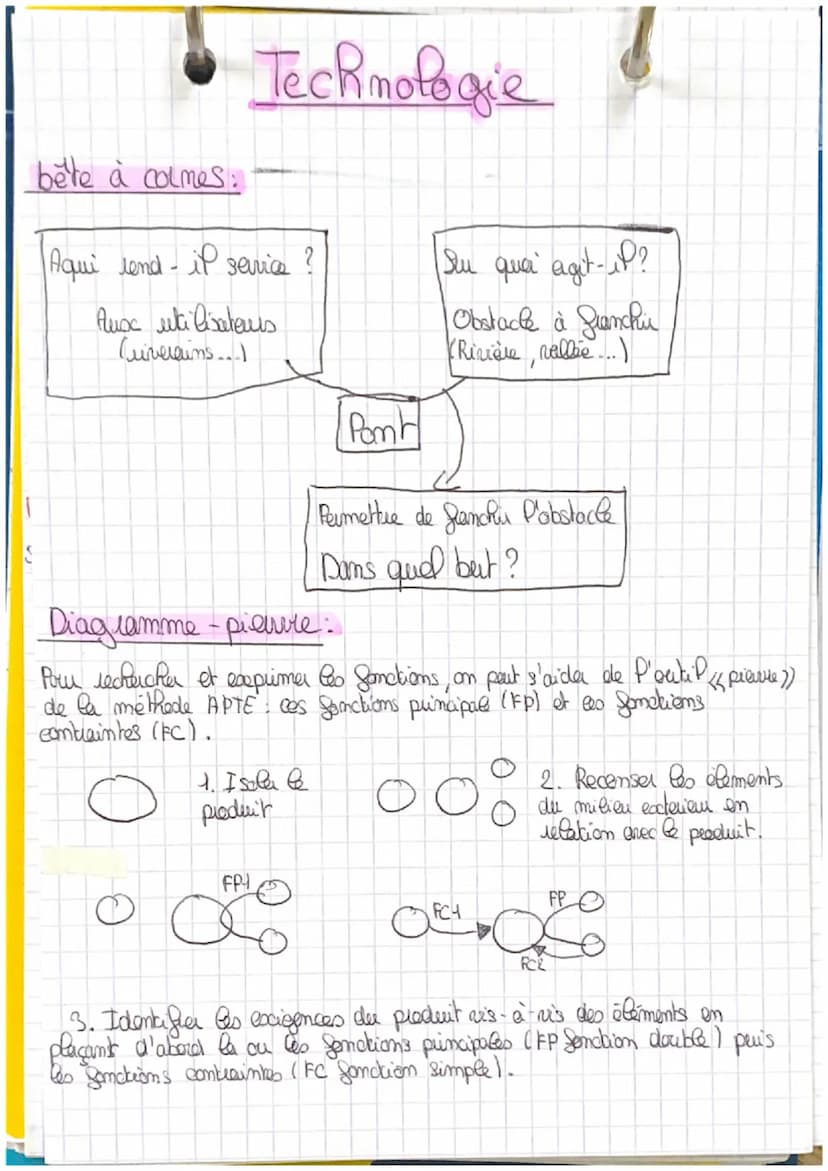 Technologie
bête à cornes :
Aqui rend-il service ?
Aux utilisateurs
(riverains...)
Sur quoi agit-il ?
Obstacle à franchir
(Rivière, vallée...)
Pont
Permettre de franchir l'obstacle
Dans quel but ?
Diagramme-pieuvre :
Pour rechercher et exprimer les fonctions, on peut s'aider de l'outil << pieuvre >>
de la méthode APTE : ces fonctions principal (FP) et les fonctions
contraintes (FC).
1. Isoler le
produit
2. Recenser les élements
du milieu exterieur en
relation avec le produit.
FP1
FC1
FP
FC2
3. Identifier les exigences du produit vis-à-vis des éléments en
plaçant d'abord la ou les fonctions principales (FP fonction double) puis
les fonctions contraintes (FC fonction simple).